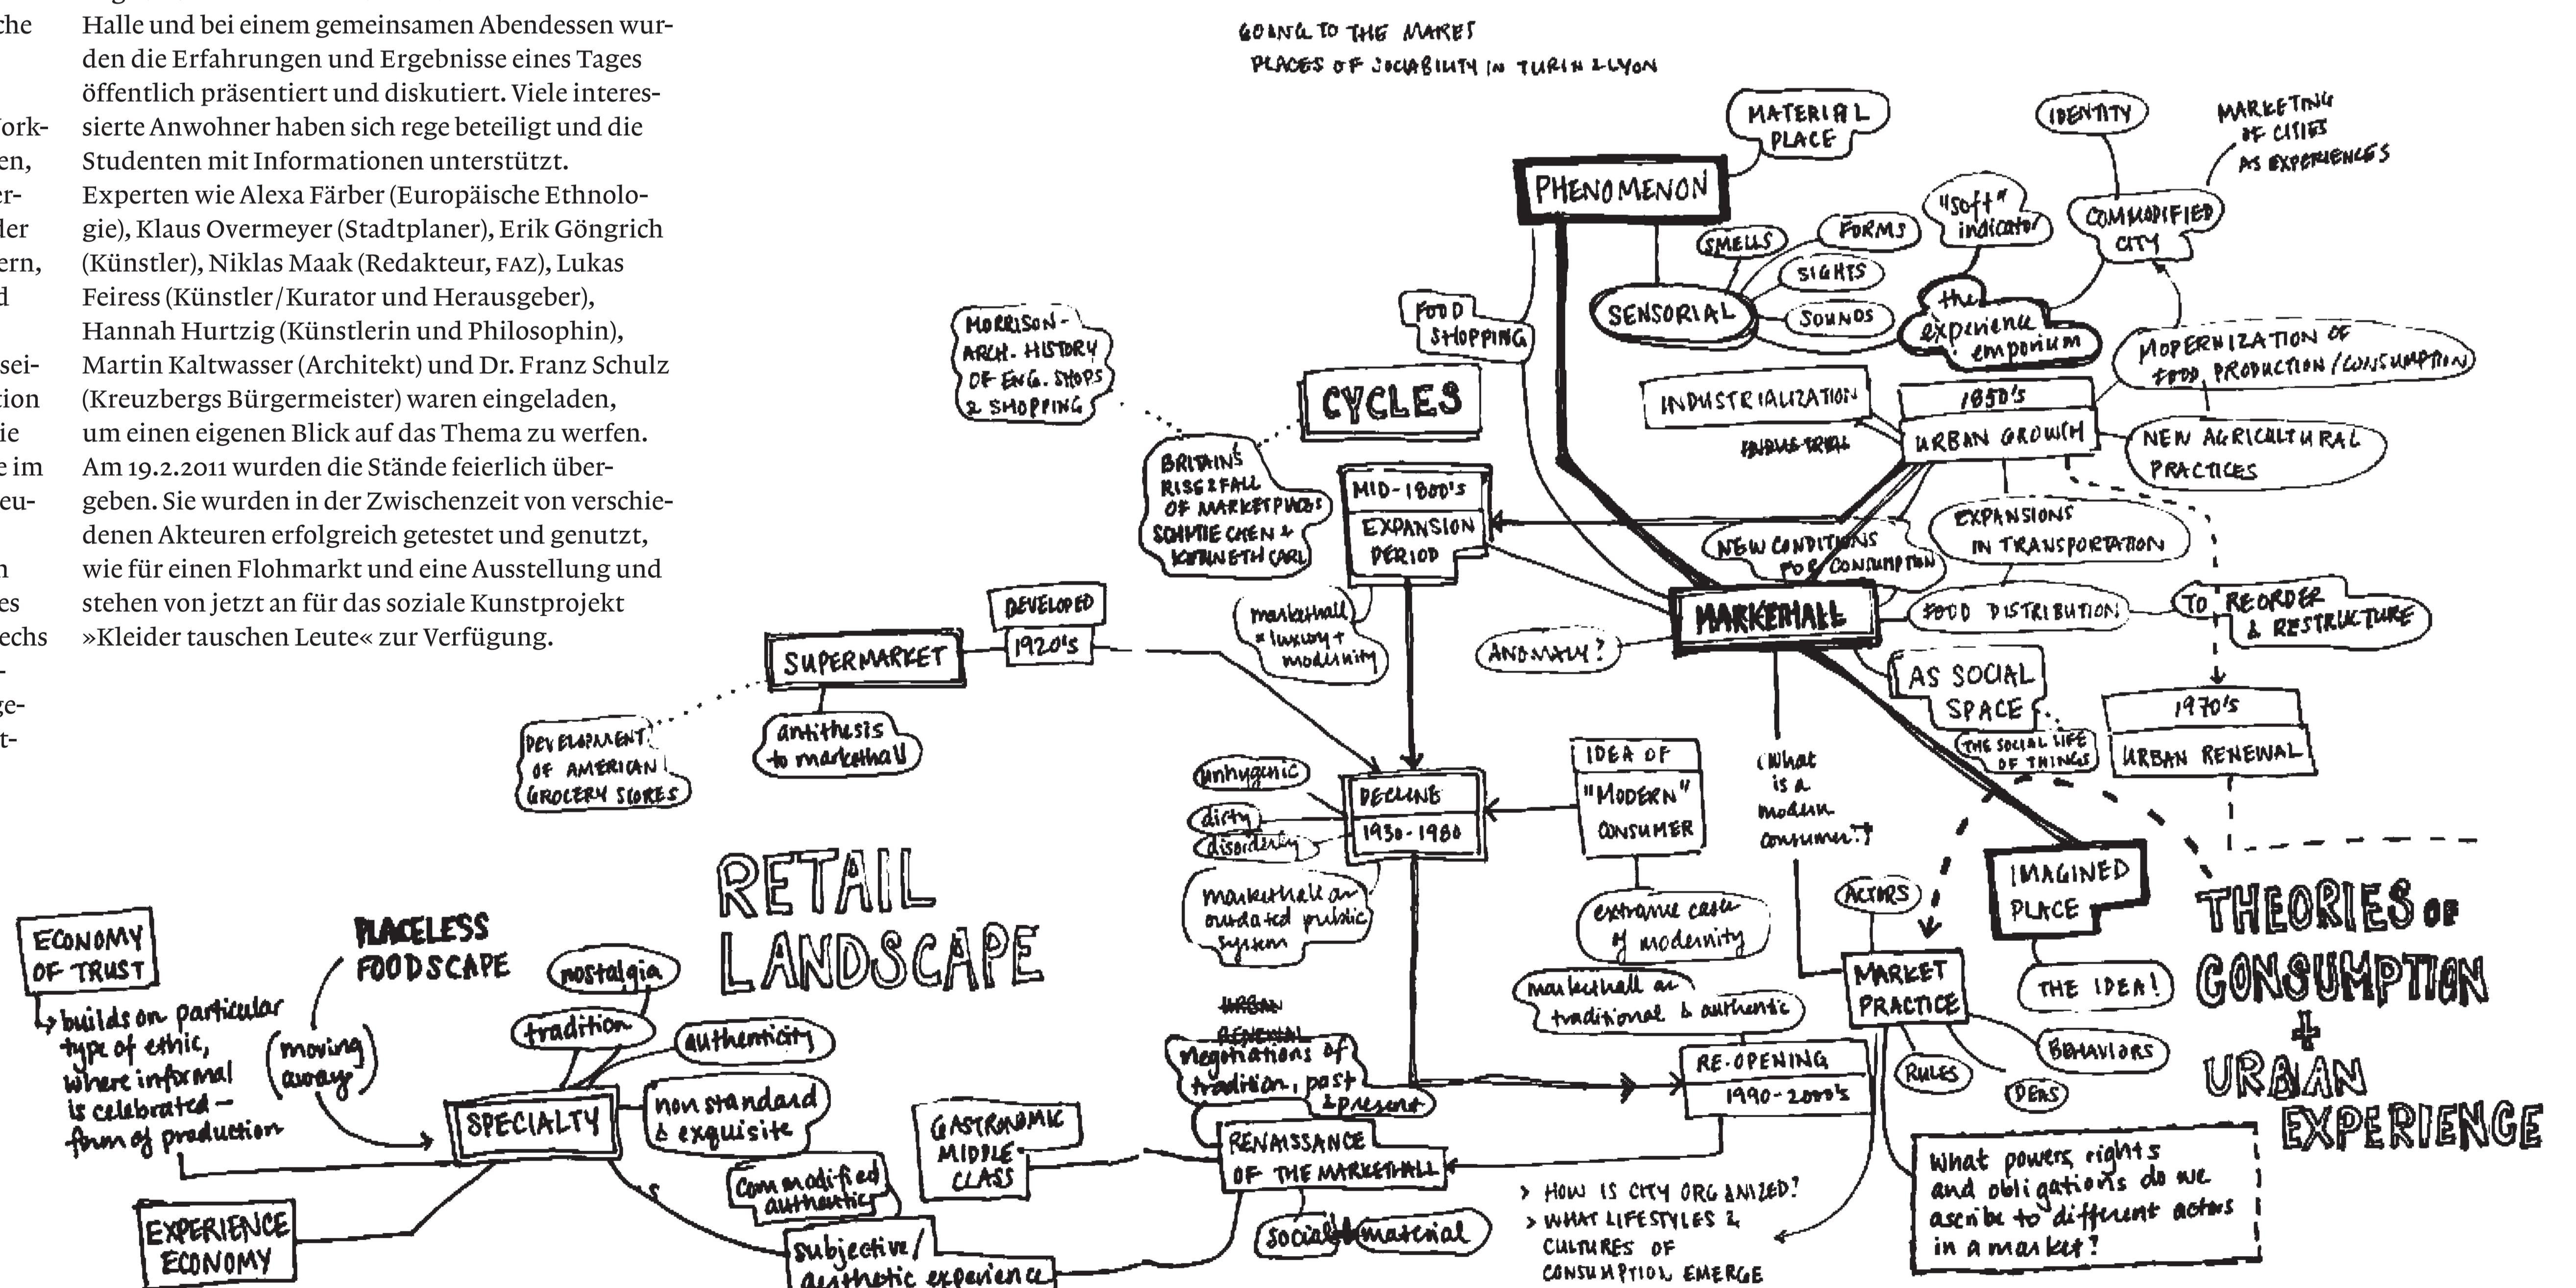 che
ork-
en,
er-
der
ern,
d
sei-
tion
ie
e im
eu-
n
es
echs
-
ge-
t-
Halle und bei einem gemeinsamen Abendessen wur-
den die Erfahrungen und Ergebnisse eines Tages
öffentlich präsentiert und diskutiert. Viele interes-
sierte Anwohner haben sich rege beteiligt und die
Studenten mit Informationen unterstützt.
Experten wie Alexa Färber (Europäische Ethnolo-
gie), Klaus Overmeyer (Stadtplaner), Erik Göngrich
(Künstler), Niklas Maak (Redakteur, FAZ), Lukas
Feiress (Künstler/Kurator und Herausgeber),
Hannah Hurtzig (Künstlerin und Philosophin),
Martin Kaltwasser (Architekt) und Dr. Franz Schulz
(Kreuzbergs Bürgermeister) waren eingeladen,
um einen eigenen Blick auf das Thema zu werfen.
Am 19.2.2011 wurden die Stände feierlich über-
geben. Sie wurden in der Zwischenzeit von verschie-
denen Akteuren erfolgreich getestet und genutzt,
wie für einen Flohmarkt und eine Ausstellung und
stehen von jetzt an für das soziale Kunstprojekt
»Kleider tauschen Leute« zur Verfügung.
GOING TO THE MARKET
PLACES OF SOCIABILITY IN TURIN & LYON
MATERIAL
PLACE
PHENOMENON
IDENTITY
MARKETING
OF CITIES
AS EXPERIENCES
"soft"
indicator
COMMODIFIED
CITY
SMELLS
FORMS
SIGHTS
SOUNDS
SENSORIAL
the
experience
emporium
FOOD
SHOPPING
MORRISON-
ARCH. HISTORY
OF ENG. SHOPS
& SHOPPING
CYCLES
MODERNIZATION OF
FOOD PRODUCTION/CONSUMPTION
INDUSTRIALIZATION
INDUSTRIAL
1850's
URBAN GROWTH
NEW AGRICULTURAL
PRACTICES
BRITAIN'S
RISE & FALL
OF MARKETPLACES
MID-1800's
EXPANSION
PERIOD
EXPANSIONS
IN TRANSPORTATION
NEW CONDITIONS
FOR CONSUMPTION
MARKETHALL
FOOD DISTRIBUTION
TO REORDER
& RESTRUCTURE
ANOMALY?
markethall
= luxury +
modernity
DEVELOPED
1920's
SUPERMARKET
antithesis
to markethall
DEVELOPMENT
OF AMERICAN
GROCERY STORES
AS SOCIAL
SPACE
THE SOCIAL LIFE
OF THINGS
1970's
URBAN RENEWAL
unhygenic
dirty
disorderly
DECLINE
1930-1980
markethall an
outdated public
system
IDEA OF
"MODERN"
CONSUMER
extreme case
of modernity
(What
is a
modern
consumer?)
IMAGINED
PLACE
THE IDEA!
ACTORS
MARKET
PRACTICE
RULES
IDEAS
BEHAVIORS
THEORIES OF
CONSUMPTION
+
URBAN
EXPERIENCE
RETAIL
LANDSCAPE
ECONOMY
OF TRUST
builds on particular
type of ethic,
where informal
is celebrated –
form of production
PLACELESS
FOODSCAPE
(moving
away)
nostalgia
tradition
authenticity
SPECIALTY
non standard
& exquisite
commodified
authentic
EXPERIENCE
ECONOMY
subjective/
aesthetic experience
GASTRONOMIC
MIDDLE
CLASS
URBAN
RENEWAL
negotiations of
tradition, past
& present
RENAISSANCE
OF THE MARKETHALL
social
material
markethall as
traditional & authentic
RE-OPENING
1990-2000's
> HOW IS CITY ORGANIZED?
> WHAT LIFESTYLES &
CULTURES OF
CONSUMPTION EMERGE
What powers, rights
and obligations do we
ascribe to different actors
in a market?